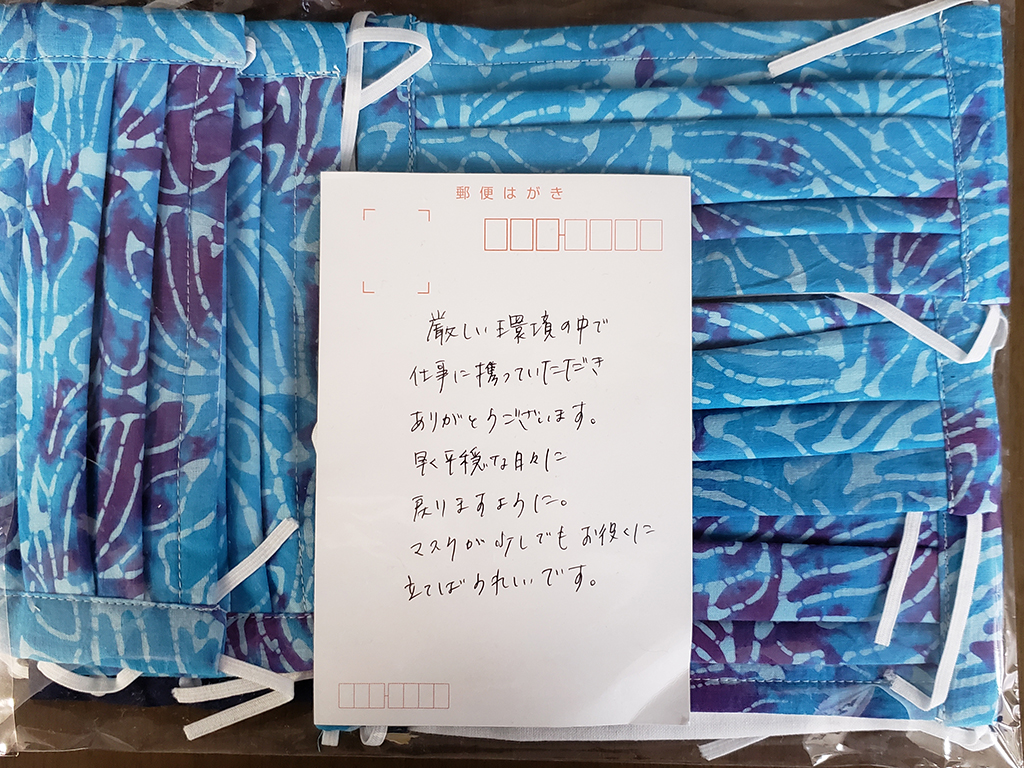 郵便はがき
厳しい環境の中で
仕事に携っていただき
ありがとうございます。
早く平穏な日々に
戻りますように。
マスクが少しでもお役くに
立てばうれしいです。